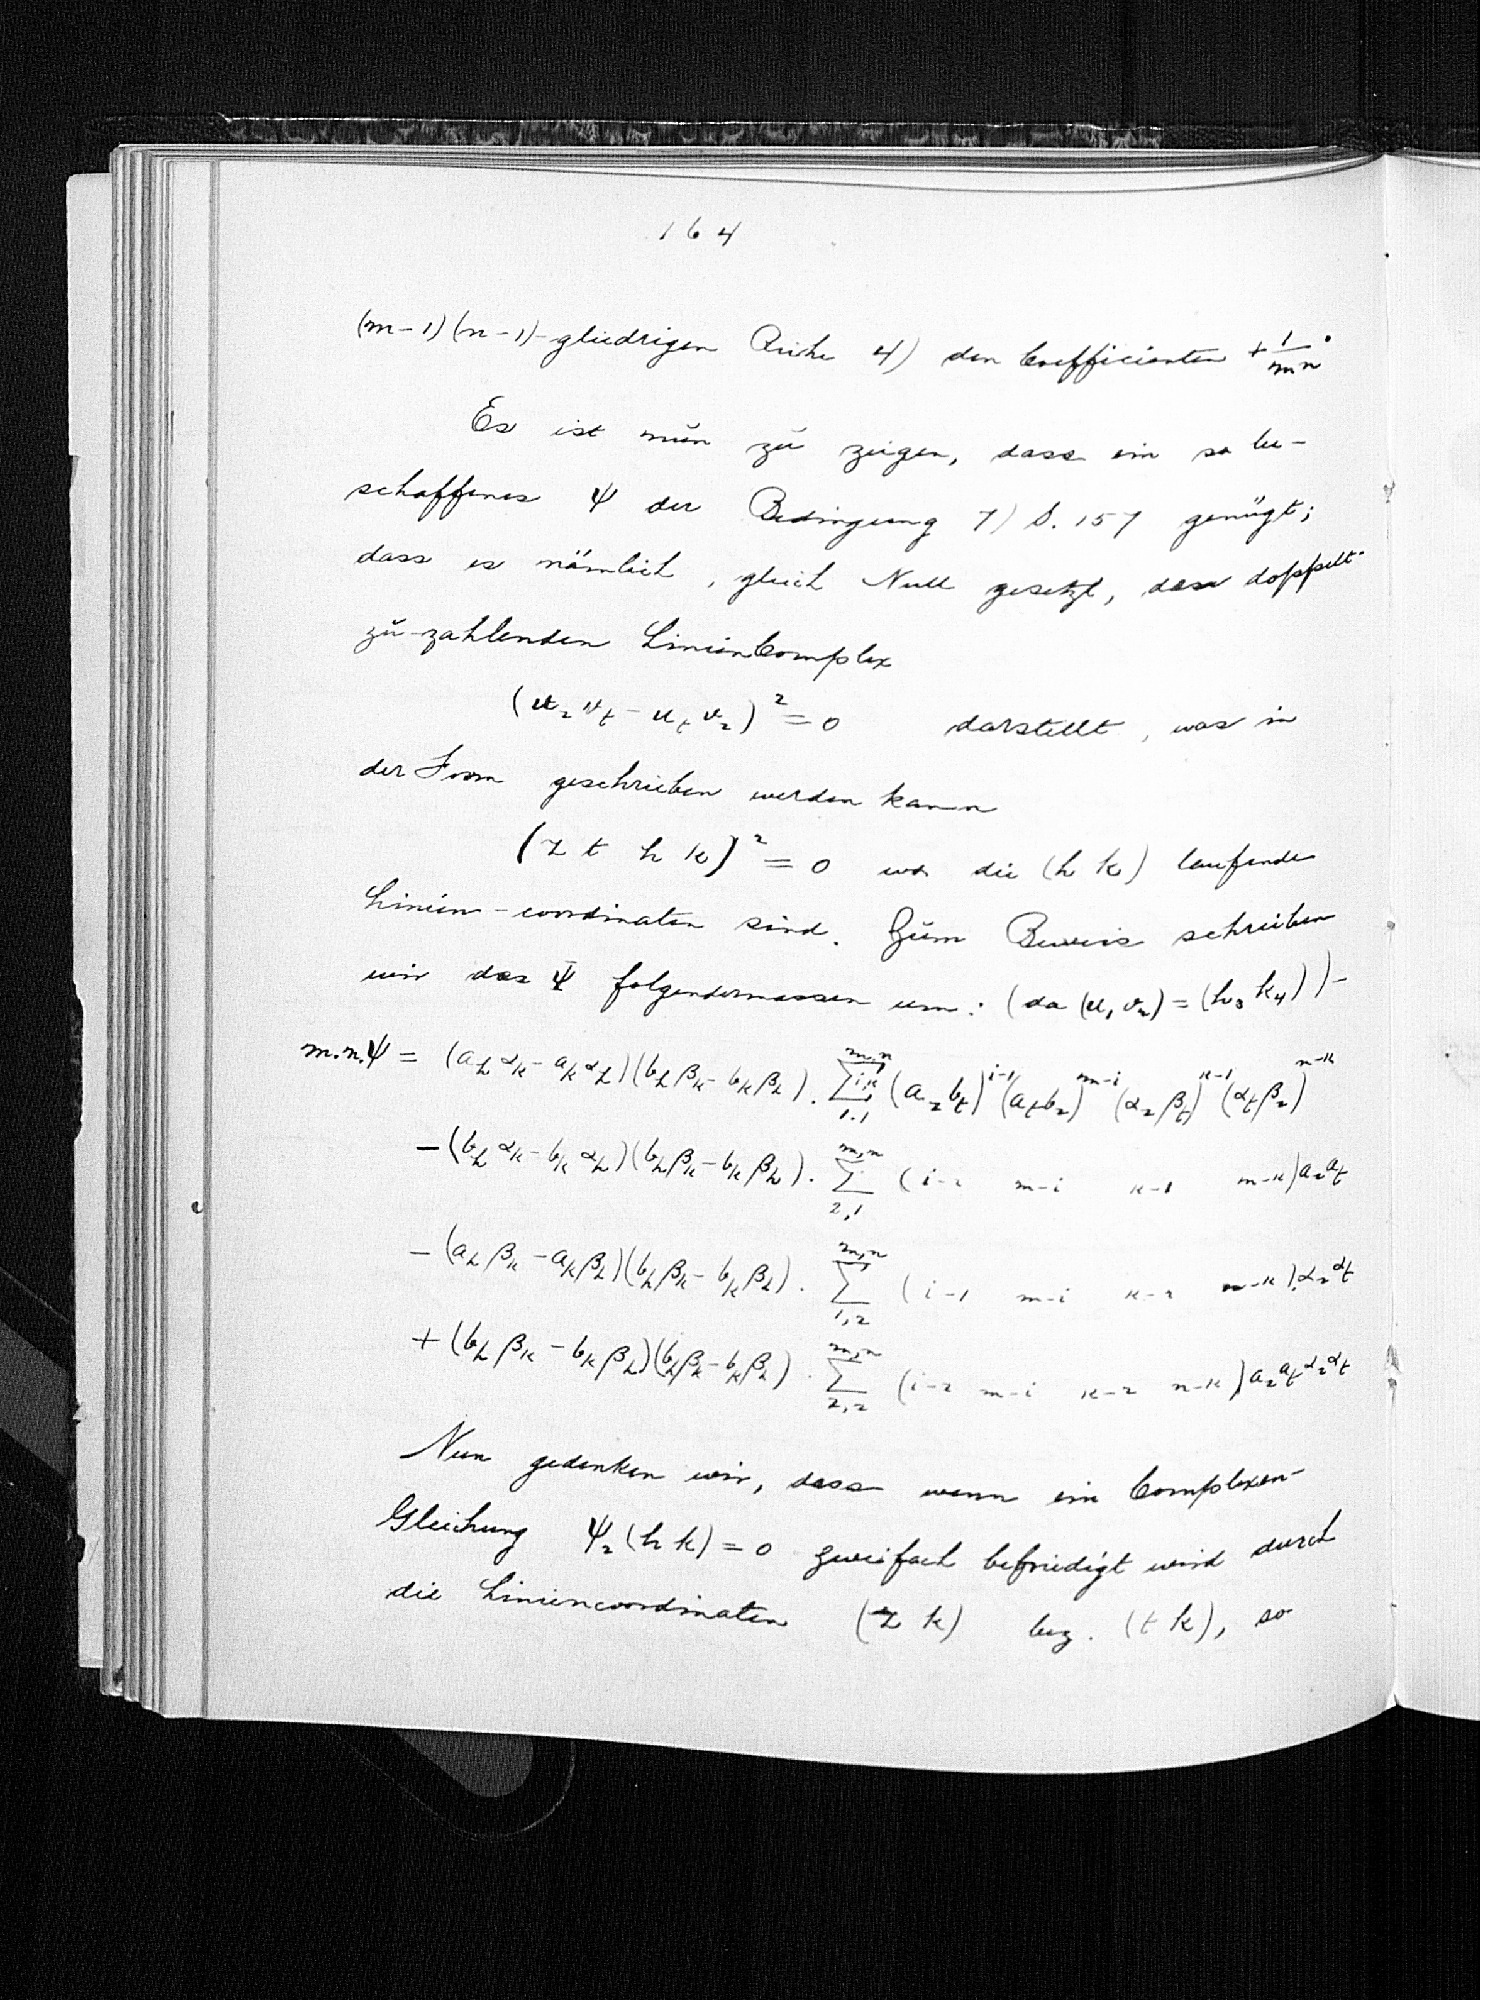 164
(m-1)(n-1)-gliedrigen Reihe 4) den Coefficienten + 1/mn.
Es ist nŭn zŭ zeigen, dass ein so be-
schaffenes Ψ der Bedingung 7) S. 157 genügt;
dass es nämlich, gleich Null gesetzt, den doppelt-
zŭ-zahlenden LinienComplex
(u_z v_t - u_t v_z)² = 0 darstellt, was in
der Form geschrieben werden kann
(z t h k)² = 0 wo die (h k) laufende
Linien-coordinaten sind. Zŭm Beweis schreiben
wir das Ψ folgendermassen um: (da (u₁ v₂) = (h₃ k₄))-
m.n.Ψ = (a_h α_k - a_k α_h)(b_h β_k - b_k β_h). Σ^{m,n}_{i,κ 1.1} (a_z b_t)^{i-1} (a_t b_z)^{m-i} (α_z β_t)^{κ-1} (α_t β_z)^{n-κ}
- (b_h α_k - b_k α_h)(b_h β_k - b_k β_h). Σ^{m,n}_{2,1} (i-2 m-i κ-1 n-κ) a_z a_t
- (a_h β_k - a_k β_h)(b_h β_k - b_k β_h). Σ^{m,n}_{1,2} (i-1 m-i κ-2 n-κ). α_z α_t
+ (b_h β_k - b_k β_h)(b_h β_k - b_k β_h). Σ^{m,n}_{2,2} (i-2 m-i κ-2 n-κ) a_z a_t α_z α_t
Nun gedenken wir, dass wenn ein Complexen-
Gleichung Ψ₂(h k) = 0 zweifach befriedigt wird durch
die Liniencoordinaten (z k) bez. (t k), so